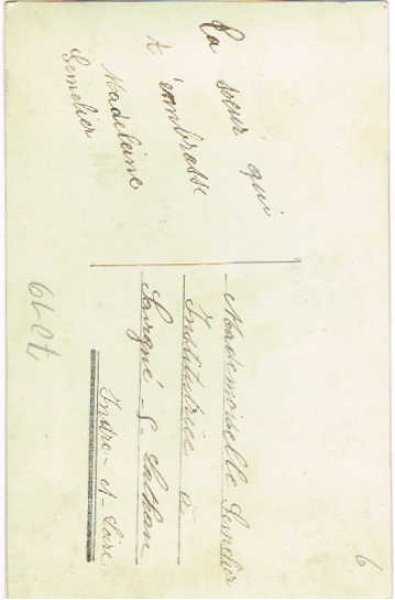 Ta soeur qui
t'embrasse
Madeleine
Semelier
Mademoiselle Semelier
Institutrice à
Savigné-s-Lathan
Indre-et-Loire
6